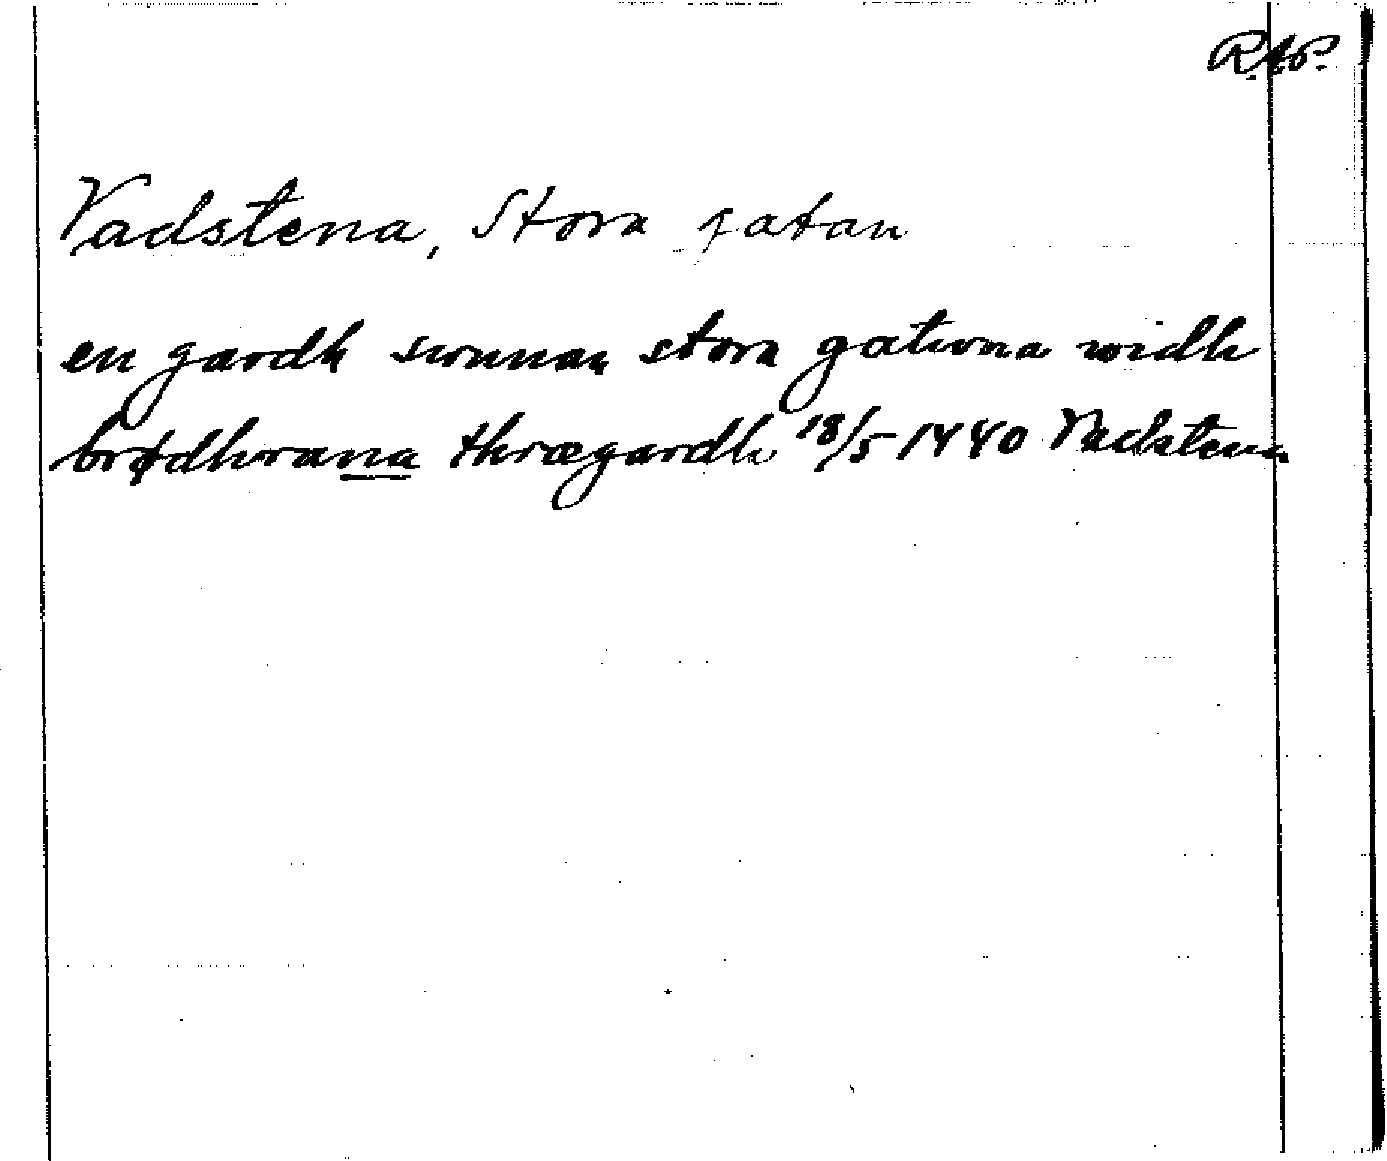 RAP.
Vadstena, Stora gatan
en gardh sunnan stora gatuna widh
brødhrana thrægardh 18/5 1440 Vadstena